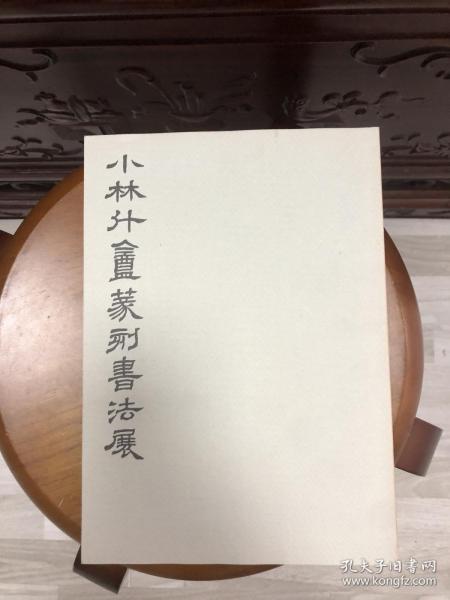 小林斗盦篆刻書法展
孔夫子旧书网
www.kongfz.com